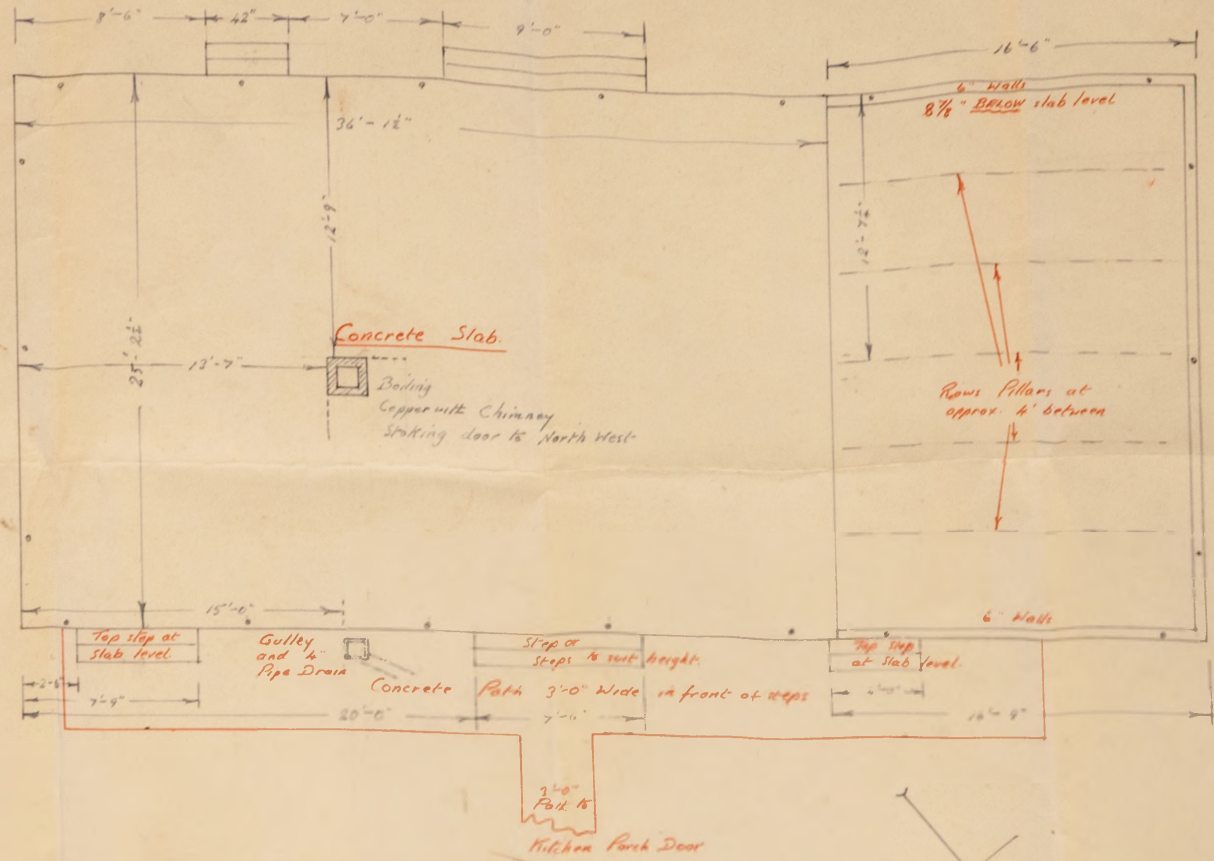 8'-6" 42" 7'-0" 9'-0" 16'-6"
6" Walls
8 7/8" BELOW slab level
36'-1½"
12'-9"
12'-7½"
25'-2½"
13'-7"
Concrete Slab.
Boiling
Copper with Chimney
Stoking door to North West
Rows Pillars at
approx. 4' between
15'-0"
6" Walls
Top step at
slab level
Gulley
and 4"
Pipe Drain
Step or
Steps to suit height.
Top step
at slab level.
Concrete Path 3'-0" Wide in front of steps
2'-6"
7'-9"
20'-0"
16'-9"
3'-0"
Kitchen Porch Door